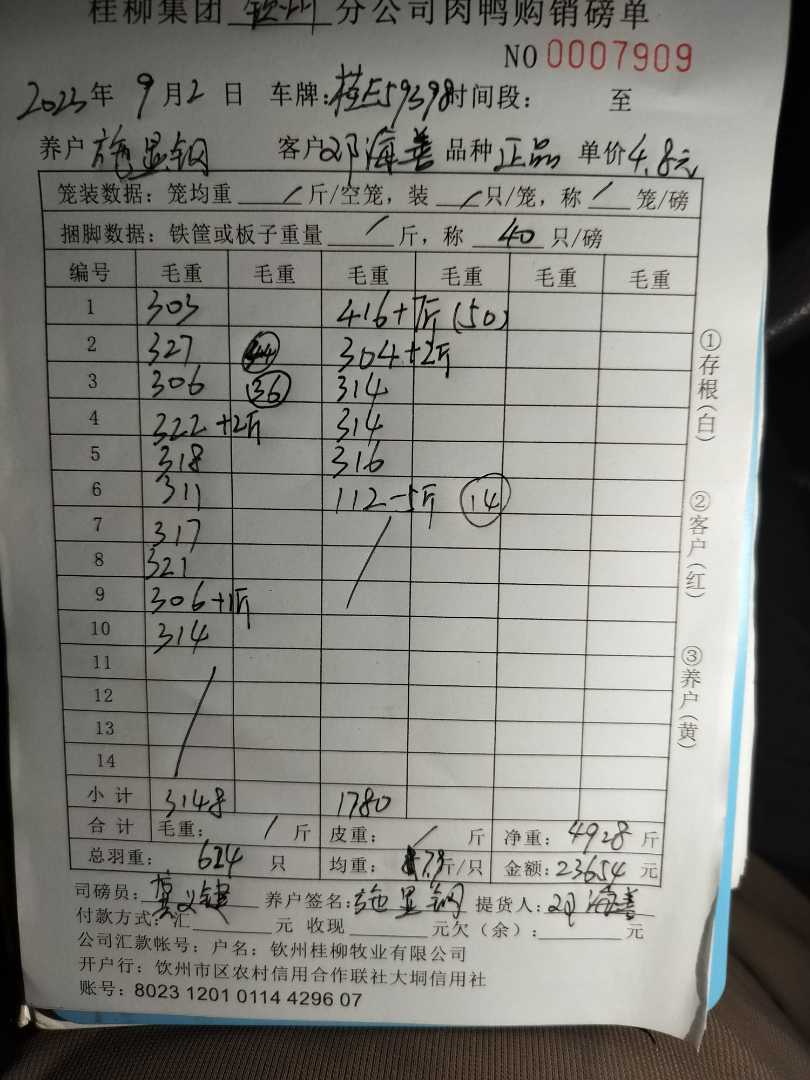 桂柳集团 钦州 分公司肉鸭购销磅单
NO 0007909
2023年 9月2日 车牌:桂E59398 时间段: 至
养户 施显钢 客户 邓海善 品种 正品 单价 4.8元
笼装数据: 笼均重 / 斤/空笼, 装 / 只/笼, 称 / 笼/磅
捆脚数据: 铁筐或板子重量 / 斤, 称 40 只/磅
编号 毛重 毛重 毛重 毛重 毛重 毛重
1 303 416+1斤(50)
2 327 304+2斤
3 306 (36) 314
4 322+2斤 314
5 318 316
6 311 112-5斤 (14)
7 317
8 321
9 306+1斤
10 314
11
12
13
14
小计 3148 1780
合计 毛重: / 斤 皮重: / 斤 净重: 4928 斤
总羽重: 624 只 均重: 7.9斤/只 金额: 23654 元
司磅员: 养户签名: 施显钢 提货人: 邓海善
付款方式: 汇 元 收现 元欠(余): 元
公司汇款帐号: 户名: 钦州桂柳牧业有限公司
开户行: 钦州市区农村信用合作联社大垌信用社
账号: 8023 1201 0114 4296 07
①存根(白)
②客户(红)
③养户(黄)